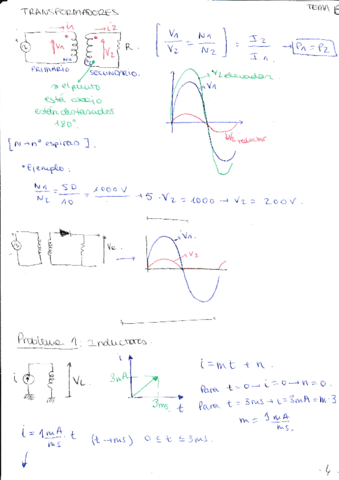 TRANSFORMADORES
TEMA
i1 i2
V1 V2 R
PRIMARIO SECUNDARIO.
[V1/V2 = N1/N2] = I2/I1 → P1 = P2
* el punto
está abajo
están desfasados
180°
V2 elevador
V1
V2 reductor
[N → nº espiras].
* Ejemplo:
N1/N2 = 50/10 = 1000V → 5·V2 = 1000 → V2 = 200V.
V1
V2
Problema 1. Inductores.
i VL
i
3mA
3ms t
i = mt + n.
Para t=0 → i=0 → n=0.
Para t=3ms → i=3mA = m·3
m = 1 mA/ms.
i = 1 mA/ms · t (t→ms) 0 ≤ t ≤ 3ms.
-4-